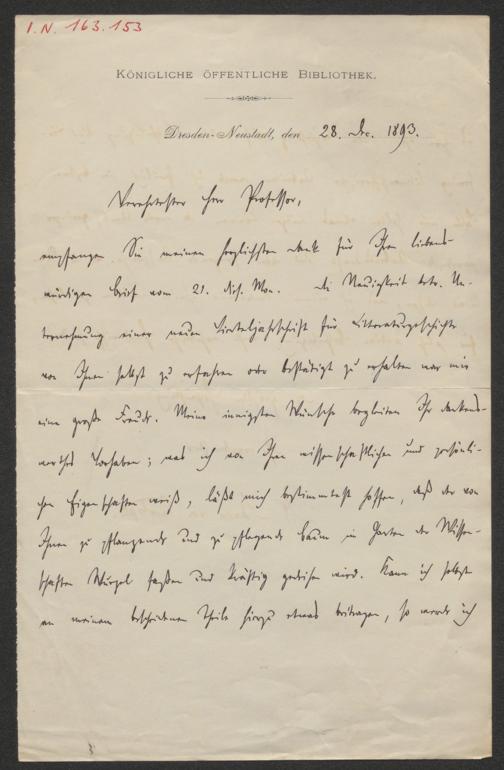 I.N. 163.153
KÖNIGLICHE ÖFFENTLICHE BIBLIOTHEK.
Dresden-Neustadt, den 28. Dec. 1893.
Verehrtester Herr Professor,
empfangen Sie meinen herzlichsten Dank für Ihren liebens-
würdigen Brief vom 21. dis. Mon. Die Neuigkeit betr. Un-
ternehmung einer neuen Vierteljahrschrift für Litteraturgeschichte
von Ihnen selbst zu erfahren oder bestätigt zu erhalten war mir
eine große Freude. Meine innigsten Wünsche begleiten Ihr dankens-
werthes Vorhaben; was ich von Ihren wissenschaftlichen und persönli-
chen Eigenschaften weiß, läßt mich bestimmtest hoffen, daß der von
Ihnen zu pflanzende und zu pflegende Baum im Garten der Wissen-
schaften Wurzel fassen und kräftig gedeihen wird. Kann ich selbst
an meinem bescheidenen Theile hierzu etwas beitragen, so werde ich